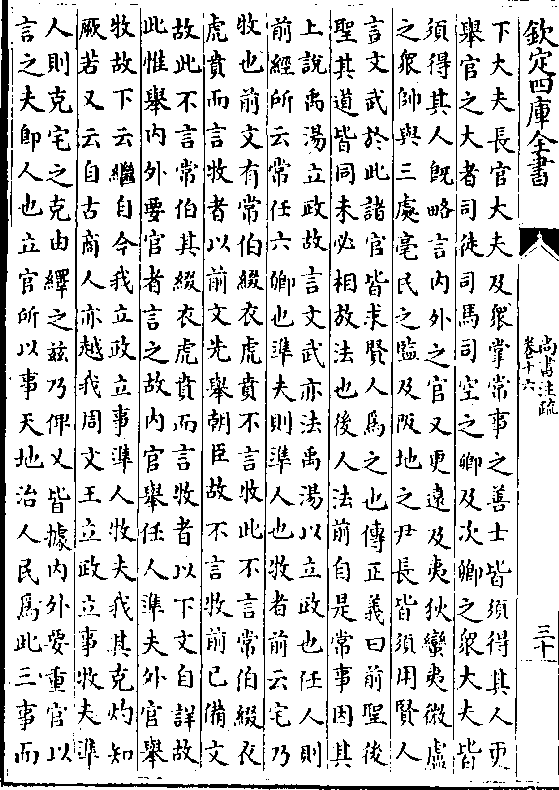 欽定四庫全書
尚書注疏
卷十六
三十
下大夫長官大夫及衆掌常事之善士皆須得其人更
舉官之大者司徒司馬司空之卿及次卿之衆大夫皆
須得其人既略言内外之官又更遠及夷狄蠻夷微盧
之衆帥與三處亳民之監及阪地之尹長皆須用賢人
言文武於此諸官皆求賢人為之也傳正義曰前聖後
聖其道皆同未必相放法也後人法前自是常事因其
上說禹湯立政故言文武亦法禹湯以立政也任人則
前經所云常任六卿也準夫則準人也牧者前云宅乃
牧也前文有常伯綴衣虎賁不言牧此不言常伯綴衣
虎賁而言牧者以前文先舉朝臣故不言牧前已備文
故此不言常伯其綴衣虎賁而言牧者以下文自詳故
此惟舉内外要官者言之故内官舉任人準夫外官舉
牧故下云繼自今我立政立事準人牧夫我其克灼知
厥若又云自古商人亦越我周文王立政立事牧夫準
人則克宅之克由繹之兹乃俾乂皆據内外要重官以
言之夫即人也立官所以事天地治人民為此三事而